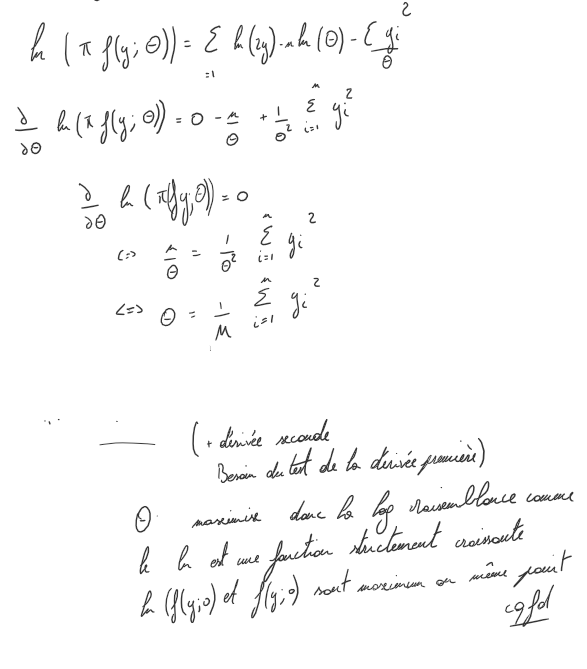 ln (π f(y; θ)) = Σ ln(2y) - n ln(θ) - Σ yi²/θ
=1
∂/∂θ ln(π f(y; θ)) = 0 - n/θ + 1/θ² Σ_{i=1}^{n} yi²
∂/∂θ ln(π f(y; θ)) = 0
<=> n/θ = 1/θ² Σ_{i=1}^{n} yi²
<=> θ = 1/n Σ_{i=1}^{n} yi²
(+ dérivée seconde
Besoin du test de la dérivée première)
θ maximise donc la log vraisemblance comme
le ln est une fonction strictement croissante
ln (f(y;θ)) et f(y;θ) sont maximum en même point
cqfd